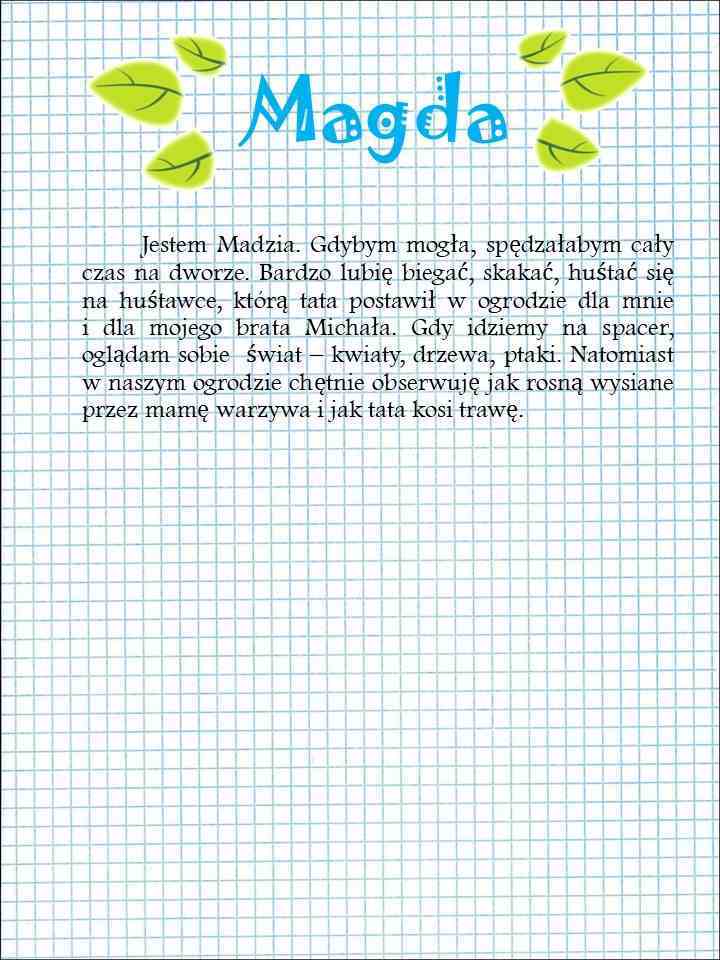 Magda
Jestem Madzia. Gdybym mogła, spędzałabym cały
czas na dworze. Bardzo lubię biegać, skakać, huśtać się
na huśtawce, którą tata postawił w ogrodzie dla mnie
i dla mojego brata Michała. Gdy idziemy na spacer,
oglądam sobie świat – kwiaty, drzewa, ptaki. Natomiast
w naszym ogrodzie chętnie obserwuję jak rosną wysiane
przez mamę warzywa i jak tata kosi trawę.